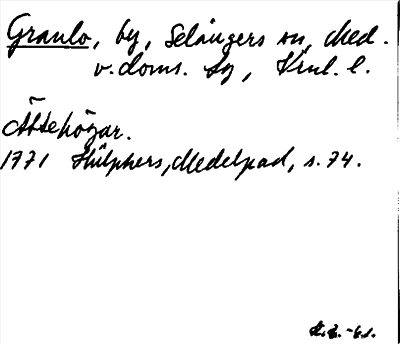 Granlo, by, Selångers sn, Med.
v. doms. sg, Vnl. l.
Ättehögar.
1771 Hülphers, Medelpad, s. 74.